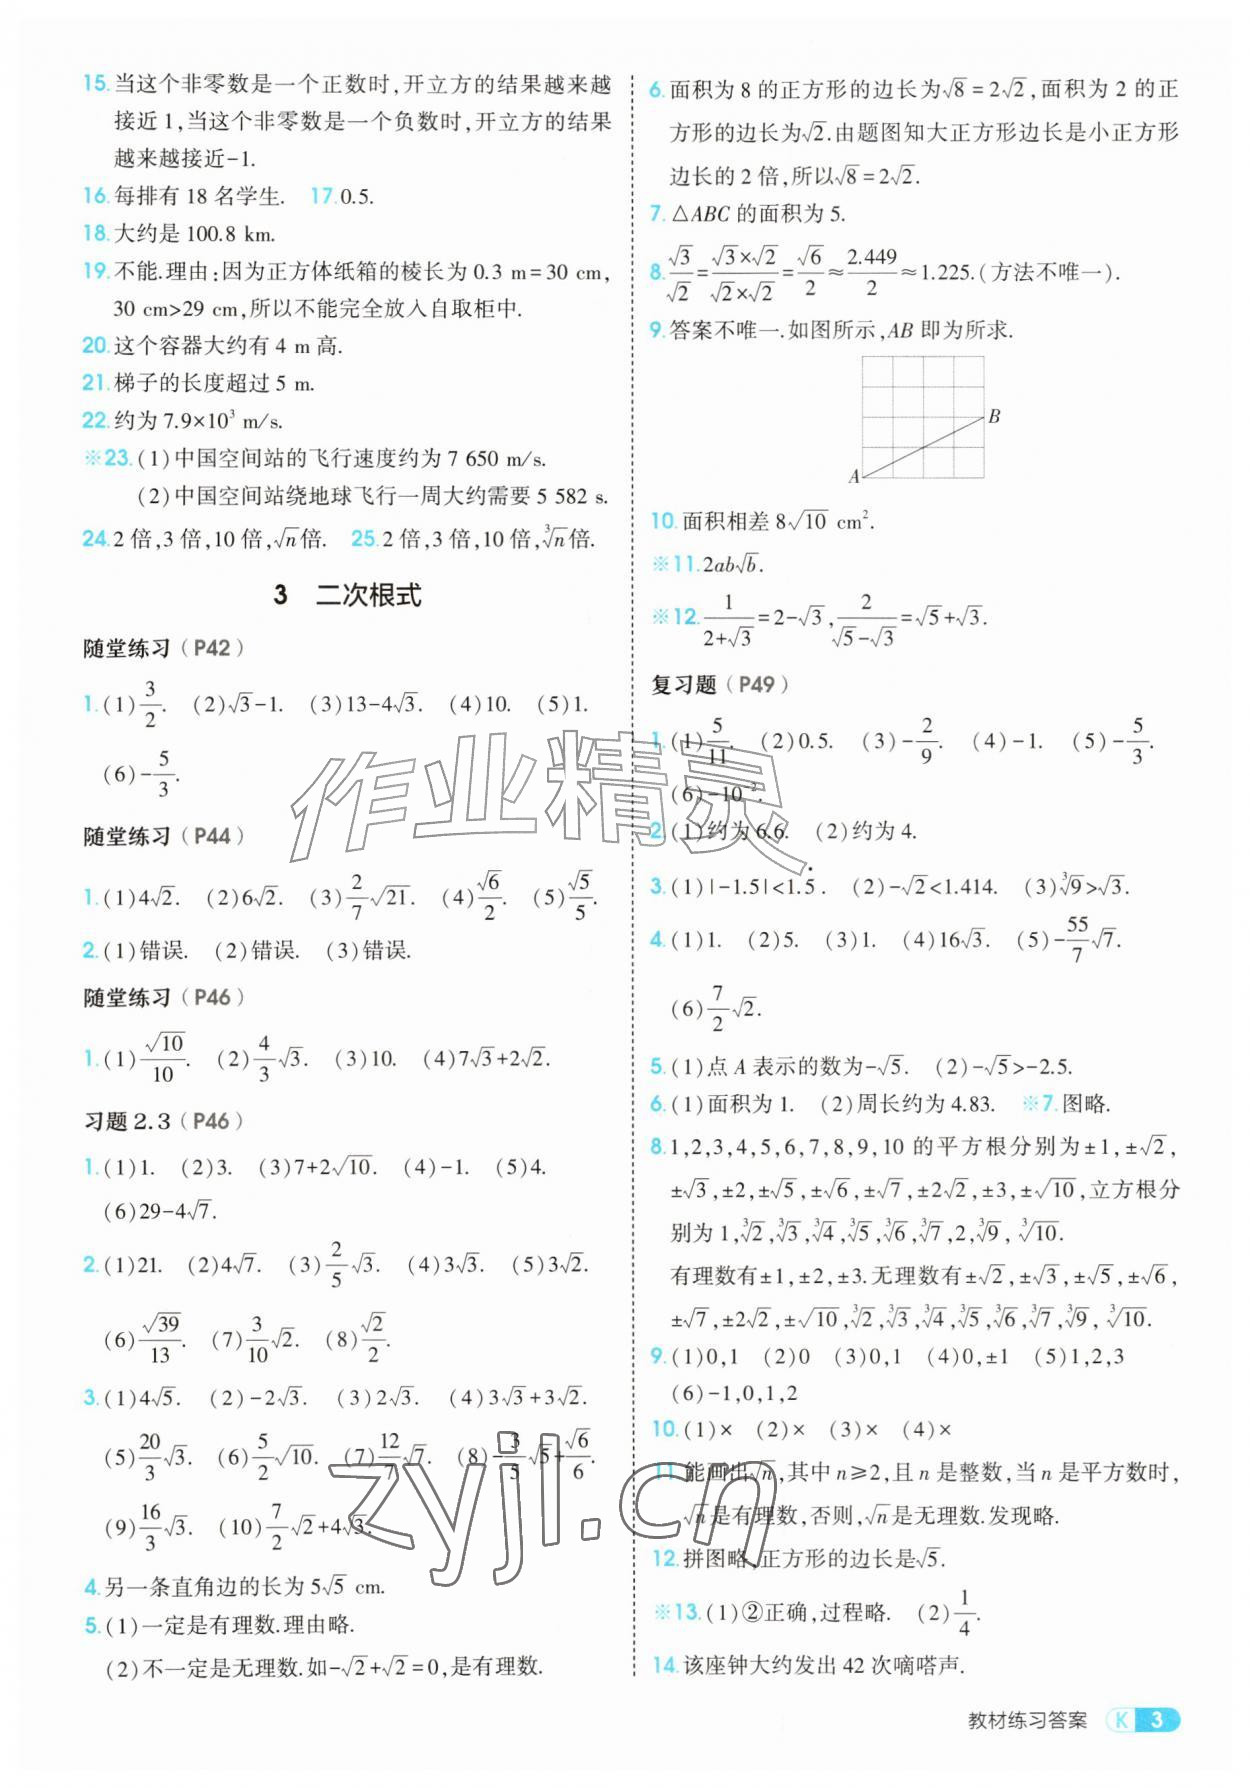 15.当这个非零数是一个正数时,开立方的结果越来越
接近1,当这个非零数是一个负数时,开立方的结果
越来越接近-1.
16.每排有 18 名学生. 17.0.5.
18.大约是 100.8 km.
19.不能.理由:因为正方体纸箱的棱长为 0.3 m=30 cm,
30 cm>29 cm,所以不能完全放入自取柜中.
20.这个容器大约有 4 m 高.
21.梯子的长度超过 5 m.
22.约为 7.9×10³ m/s.
※23.(1)中国空间站的飞行速度约为 7 650 m/s.
(2)中国空间站绕地球飞行一周大约需要 5 582 s.
24.2 倍,3 倍,10 倍,√n倍. 25.2 倍,3 倍,10 倍,∛n倍.
3 二次根式
随堂练习(P42)
1.(1)3/2. (2)√3-1. (3)13-4√3. (4)10. (5)1.
(6)-5/3.
随堂练习(P44)
1.(1)4√2. (2)6√2. (3)2/7√21. (4)√6/2. (5)√5/5.
2.(1)错误. (2)错误. (3)错误.
随堂练习(P46)
1.(1)√10/10. (2)4/3√3. (3)10. (4)7√3+2√2.
习题 2.3(P46)
1.(1)1. (2)3. (3)7+2√10. (4)-1. (5)4.
(6)29-4√7.
2.(1)21. (2)4√7. (3)2/5√3. (4)3√3. (5)3√2.
(6)√39/13. (7)3/10√2. (8)√2/2.
3.(1)4√5. (2)-2√3. (3)2√3. (4)3√3+3√2.
(5)20/3√3. (6)5/2√10. (7)12/7√7. (8)-3/5√5+√6/6.
(9)16/3√3. (10)7/2√2+4√3.
4.另一条直角边的长为 5√5 cm.
5.(1)一定是有理数.理由略.
(2)不一定是无理数.如-√2+√2=0,是有理数.
6.面积为 8 的正方形的边长为√8=2√2,面积为 2 的正
方形的边长为√2.由题图知大正方形边长是小正方形
边长的 2 倍,所以√8=2√2.
7.△ABC 的面积为 5.
8.√3/√2=(√3×√2)/(√2×√2)=√6/2≈2.449/2≈1.225.(方法不唯一).
9.答案不唯一.如图所示,AB 即为所求.
B
A
10.面积相差 8√10 cm².
※11.2ab√b.
※12.1/(2+√3)=2-√3,2/(√5-√3)=√5+√3.
复习题(P49)
1.(1)5/11. (2)0.5. (3)-2/9. (4)-1. (5)-5/3.
(6)-10⁻².
2.(1)约为 6.6. (2)约为 4.
3.(1)|-1.5|<1.5̇. (2)-√2<1.414. (3)∛9>√3.
4.(1)1. (2)5. (3)1. (4)16√3. (5)-55/7√7.
(6)7/2√2.
5.(1)点 A 表示的数为-√5. (2)-√5>-2.5.
6.(1)面积为 1. (2)周长约为 4.83. ※7.图略.
8.1,2,3,4,5,6,7,8,9,10 的平方根分别为±1,±√2,
±√3,±2,±√5,±√6,±√7,±2√2,±3,±√10,立方根分
别为 1,∛2,∛3,∛4,∛5,∛6,∛7,2,∛9,∛10.
有理数有±1,±2,±3.无理数有±√2,±√3,±√5,±√6,
±√7,±2√2,±√10,∛2,∛3,∛4,∛5,∛6,∛7,∛9,∛10.
9.(1)0,1 (2)0 (3)0,1 (4)0,±1 (5)1,2,3
(6)-1,0,1,2
10.(1)× (2)× (3)× (4)×
11.能画出√n,其中 n≥2,且 n 是整数,当 n 是平方数时,
√n是有理数,否则,√n是无理数.发现略.
12.拼图略,正方形的边长是√5.
※13.(1)②正确,过程略. (2)1/4.
14.该座钟大约发出 42 次嘀嗒声.
教材练习答案 K 3
作业精灵
zyjl.cn